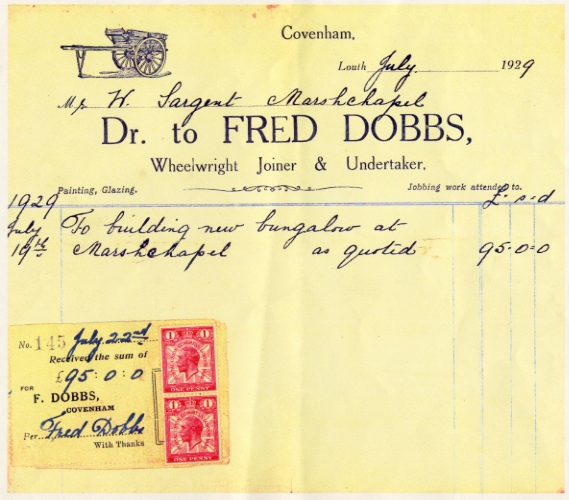 Covenham,
Louth July 1929
Mr W. Sargent Marshchapel
Dr. to FRED DOBBS,
Wheelwright Joiner & Undertaker,
Painting, Glazing. Jobbing work attended to.
1929 £ s d
July To building new bungalow at
19th Marshchapel as quoted 95.0.0
No. 145 July 22nd
Received the sum of
£95:0:0
FOR
F. DOBBS,
COVENHAM
Per Fred Dobbs
With Thanks
1 1
ONE PENNY
1 1
ONE PENNY